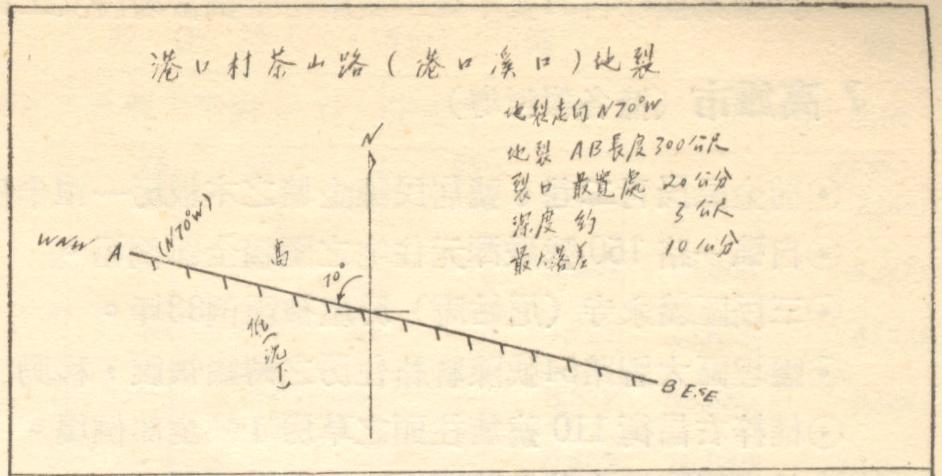 港口村茶山路(港口溪口)地裂
地裂走向N70°W
地裂 AB長度300公尺
裂口最寬處 20公分
深度約 3公尺
最大落差 10公分
N
WNW A (N70°W)
高
70°
低(沉下)
B ESE